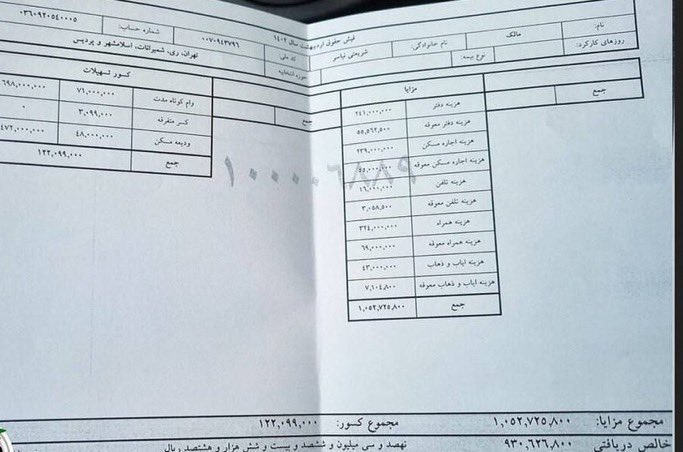 فیش حقوق اردیبهشت سال ۱۴۰۲
شماره حساب: ۰۳۶۰۹۲۰۵۴۰۰۰۵
نام: مالک نام خانوادگی: شریعتی نیاسر کد ملی ۰۰۷۰۹۴۳۷۹۶
روزهای کارکرد: نوع بیمه: حوزه انتخابیه تهران، ری، شمیرانات، اسلامشهر و پردیس
جمع
مزایا
هزینه دفتر ۲۴۱,۰۰۰,۰۰۰
هزینه دفتر معوقه ۵۵,۵۶۲,۵۰۰
هزینه اجاره مسکن ۲۳۹,۰۰۰,۰۰۰
هزینه اجاره مسکن معوقه ۵۵,۰۰۰,۰۰۰
هزینه تلفن ۱۶,۰۰۰,۰۰۰
هزینه تلفن معوقه ۳,۰۵۸,۵۰۰
هزینه همراه ۳۲۴,۰۰۰,۰۰۰
هزینه همراه معوقه ۶۹,۰۰۰,۰۰۰
هزینه ایاب و ذهاب ۴۳,۰۰۰,۰۰۰
هزینه ایاب و ذهاب معوقه ۷,۱۰۴,۸۰۰
جمع ۱,۰۵۲,۷۲۵,۸۰۰
جمع
کسور تسهیلات
وام کوتاه مدت ۷۱,۰۰۰,۰۰۰ ۶۹۸,۰۰۰,۰۰۰
کسر متفرقه ۳,۰۹۹,۰۰۰ ۰
ودیعه مسکن ۴۸,۰۰۰,۰۰۰ ۴۷۲,۰۰۰,۰۰۰
جمع ۱۲۲,۰۹۹,۰۰۰
مجموع مزایا: ۱,۰۵۲,۷۲۵,۸۰۰ مجموع کسور: ۱۲۲,۰۹۹,۰۰۰
خالص دریافتی ۹۳۰,۶۲۶,۸۰۰ نهصد و سی میلیون و ششصد و بیست و شش هزار و هشتصد ریال